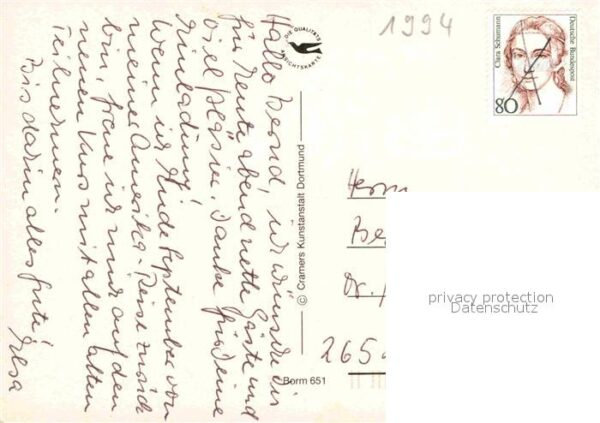 Hallo Bernd, ich wünsche dir
für heute abend nette Gäste und
viel pläsier. Danke für deine
Einladung!
Wenn ich Ende September von
meiner Amerika-Reise zurück
bin, freue ich mich auf den
neuen Kurs mit allen alten
Teilnehmern.
Bis dahin alles gute!
1994
DIE QUALITÄTS
ANSICHTSKARTE
© Cramers Kunstanstalt Dortmund
Borm 651
Clara Schumann
Deutsche Bundespost
80
Herrn
Be
Dr.
265
privacy protection
Datenschutz